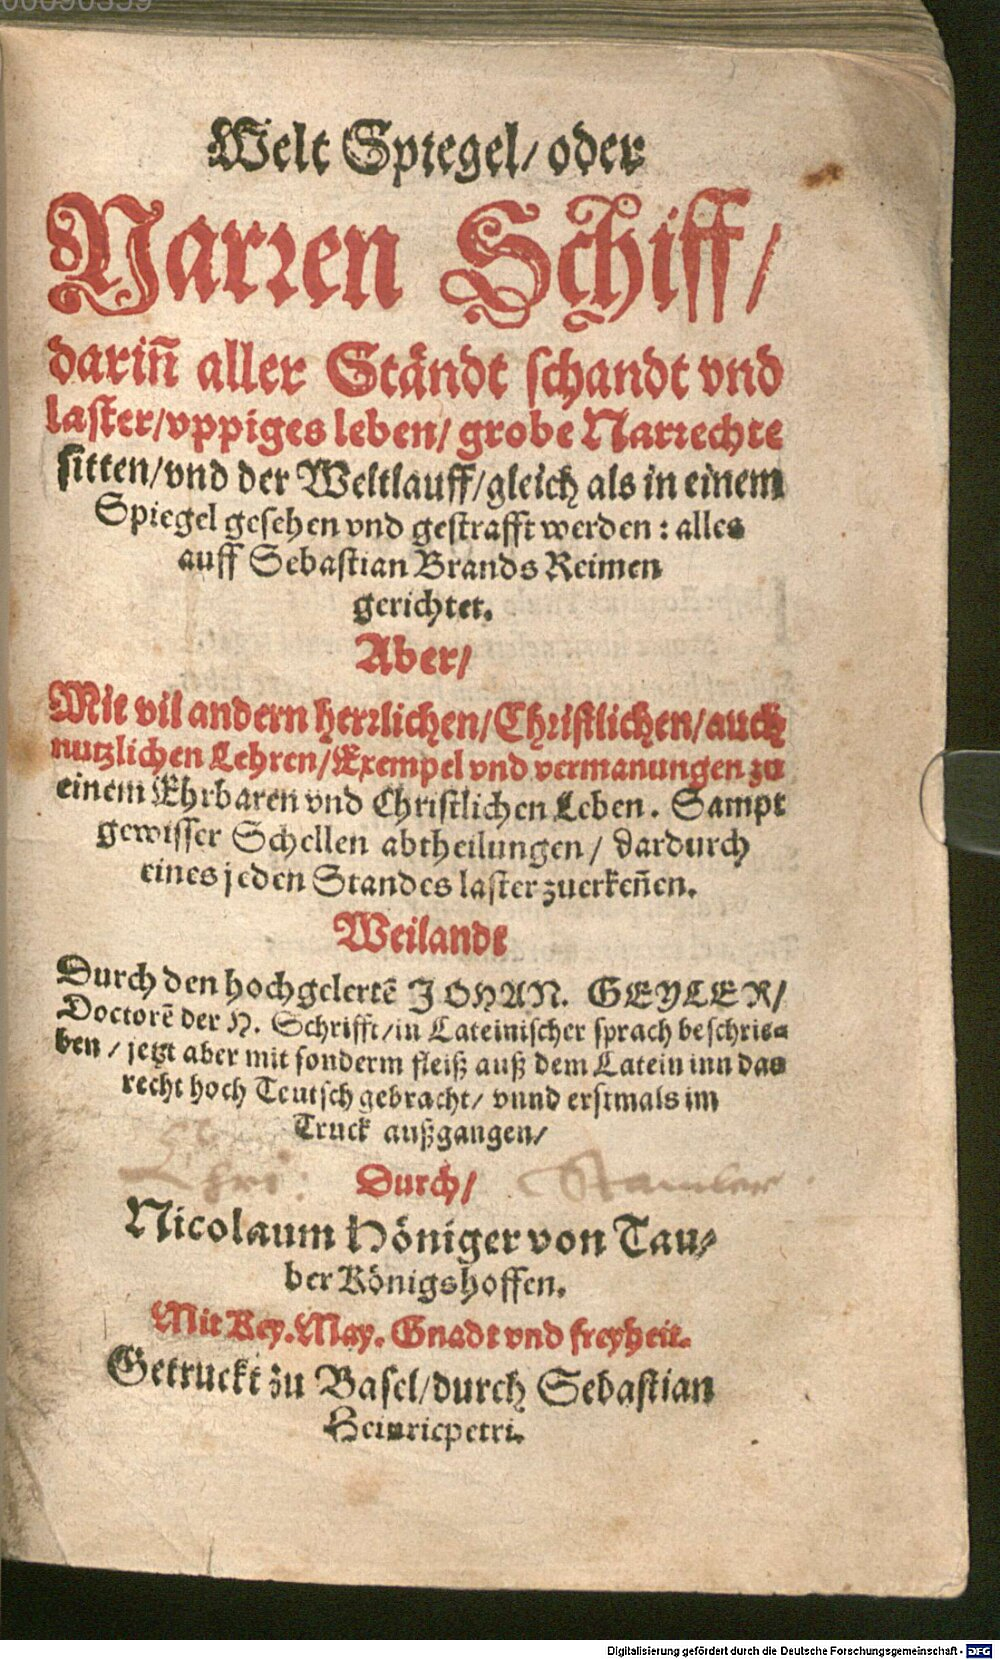 00090359
Welt Spiegel/ oder
Narren Schiff/
dariñ aller Ständt schandt vnd
laster/vppiges leben/ grobe Narrechte
sitten/vnd der Weltlauff/gleich als in einem
Spiegel gesehen vnd gestrafft werden: alles
auff Sebastian Brands Reimen
gerichtet.
Aber/
Mit vil andern herrlichen/Christlichen/auch
nutzlichen Lehren/Exempel vnd vermanungen zu
einem Ehrbaren vnd Christlichen Leben. Sampt
gewisser Schellen abtheilungen/ dardurch
eines jeden Standes laster zuerkeñen.
Weilandt
Durch den hochgelertē JOHAN. GEYLER/
Doctorē der H. Schrifft/in Lateinischer sprach beschrie=
ben / jetzt aber mit sonderm fleiß auß dem Latein inn das
recht hoch Teutsch gebracht/ vnnd erstmals im
Truck außgangen/
Durch/
Nicolaum Höniger von Tau=
ber Königshoffen.
Mit Key. May. Gnadt vnd freyheit.
Getruckt zu Basel/durch Sebastian
Heinricpetri.
Digitalisierung gefördert durch die Deutsche Forschungsgemeinschaft - DFG